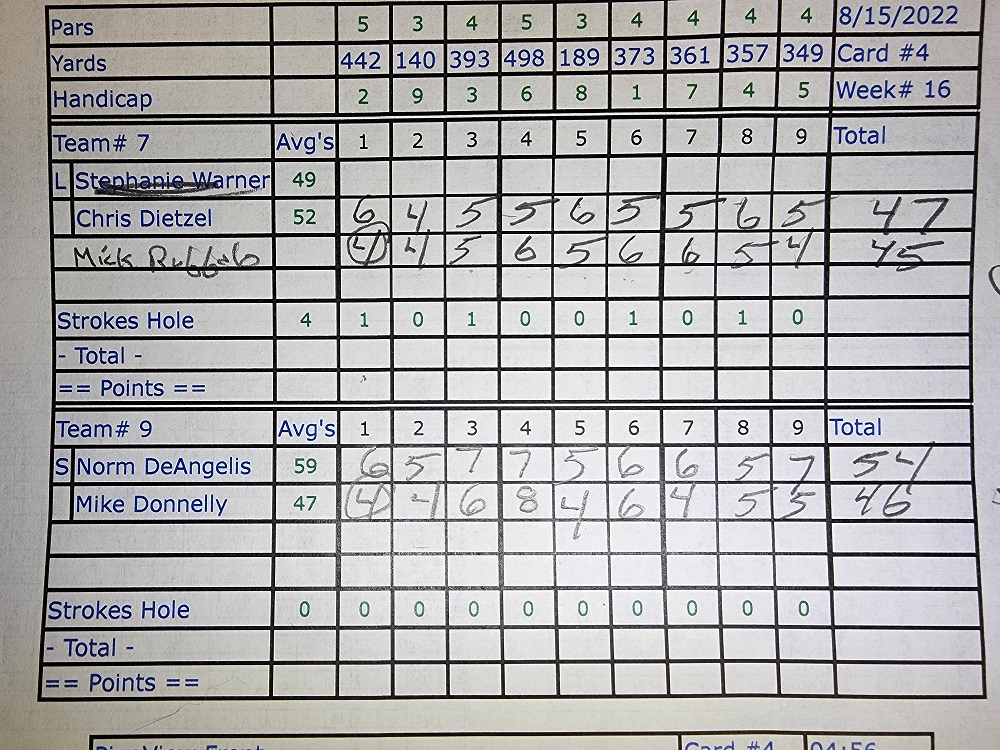 Pars 5 3 4 5 3 4 4 4 4 8/15/2022
Yards 442 140 393 498 189 373 361 357 349 Card #4
Handicap 2 9 3 6 8 1 7 4 5 Week# 16
Team# 7 Avg's 1 2 3 4 5 6 7 8 9 Total
L Stephanie Warner 49
Chris Dietzel 52 6 4 5 5 6 5 5 6 5 47
Mick 4 4 5 6 5 6 6 5 4 45
Strokes Hole 4 1 0 1 0 0 1 0 1 0
- Total -
== Points ==
Team# 9 Avg's 1 2 3 4 5 6 7 8 9 Total
S Norm DeAngelis 59 6 5 7 7 5 6 6 5 7 54
Mike Donnelly 47 4 4 6 8 4 6 4 5 5 46
Strokes Hole 0 0 0 0 0 0 0 0 0 0
- Total -
== Points ==
Card #4 04:56